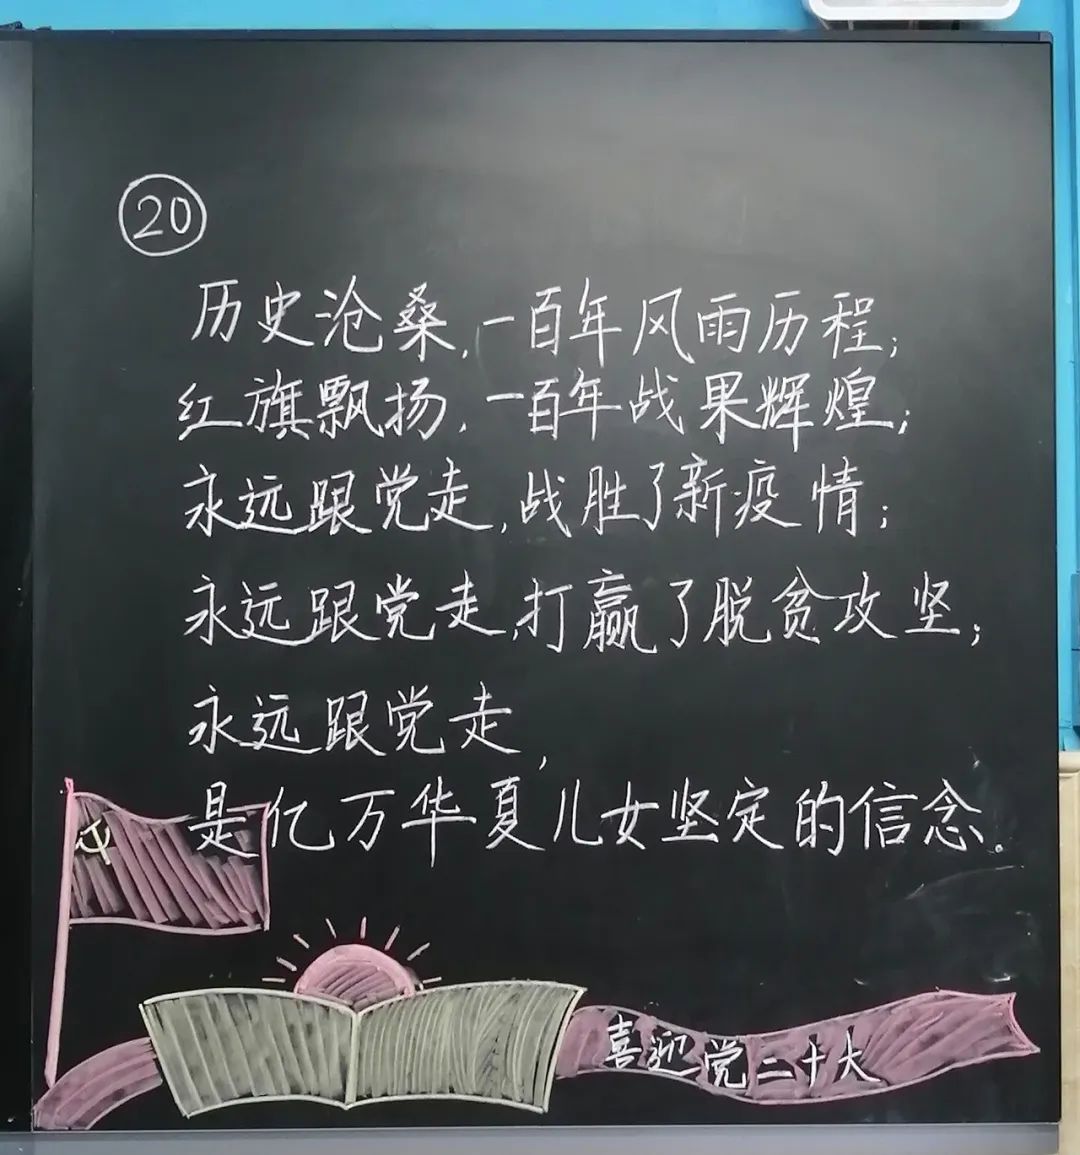 20
历史沧桑,一百年风雨历程;
红旗飘扬,一百年战果辉煌;
永远跟党走,战胜了新疫情;
永远跟党走,打赢了脱贫攻坚;
永远跟党走,
是亿万华夏儿女坚定的信念。
喜迎党二十大